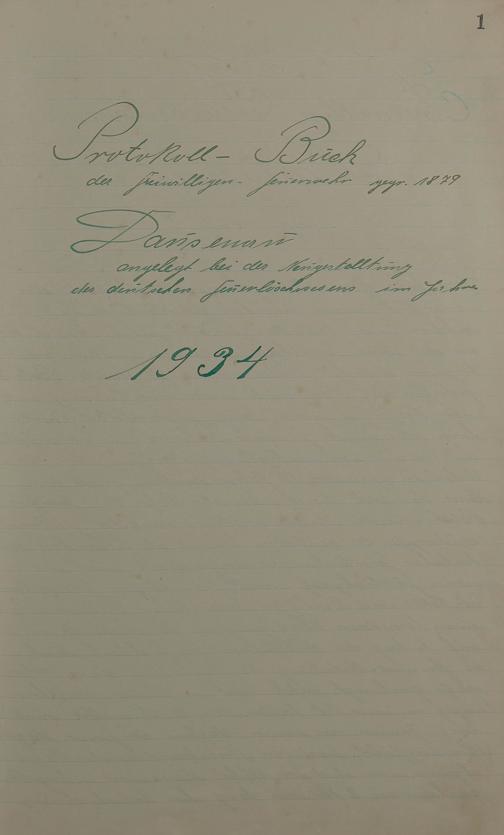 1
Protokoll- Buch
der freiwilligen- Feuerwehr gegr. 1879
Dausenau
angelegt bei der Neugestalltung
des deutschen Feuerlöschwesens im Jahre
1934